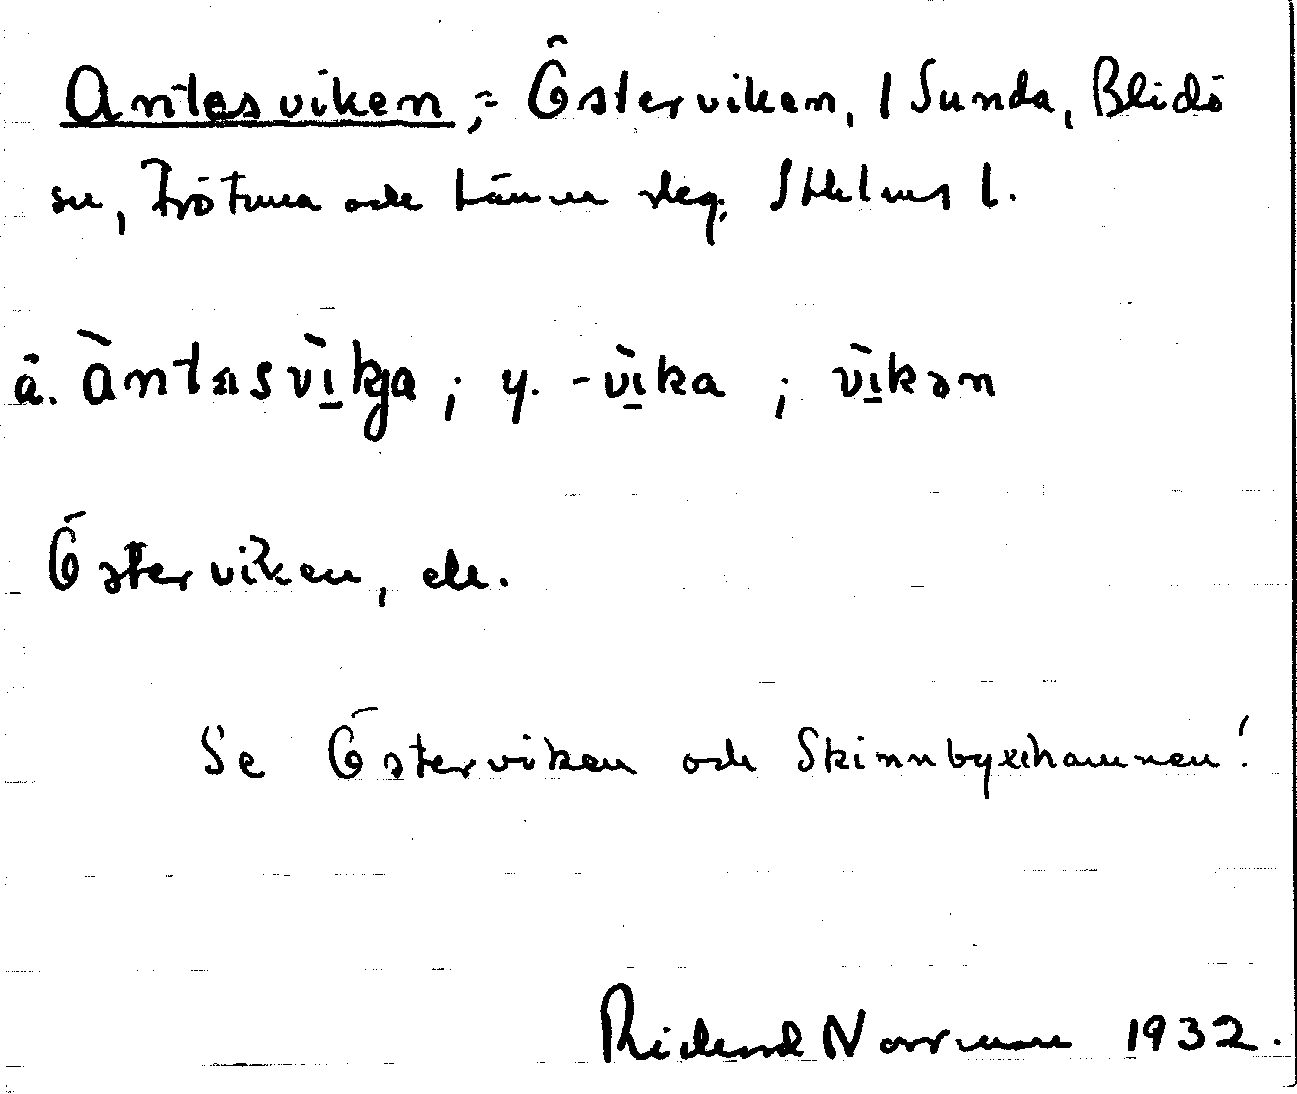 Antesviken, = Österviken, 1 Sunda, Blidö
sn, Frötuna och Länna skeg. Sthlms l.
ä. àntasvìkja ; y. -vìka ; vìkən
Österviken, ele.
Se Österviken och Skinnbyxehamnen!
Rickard Norrman 1932.